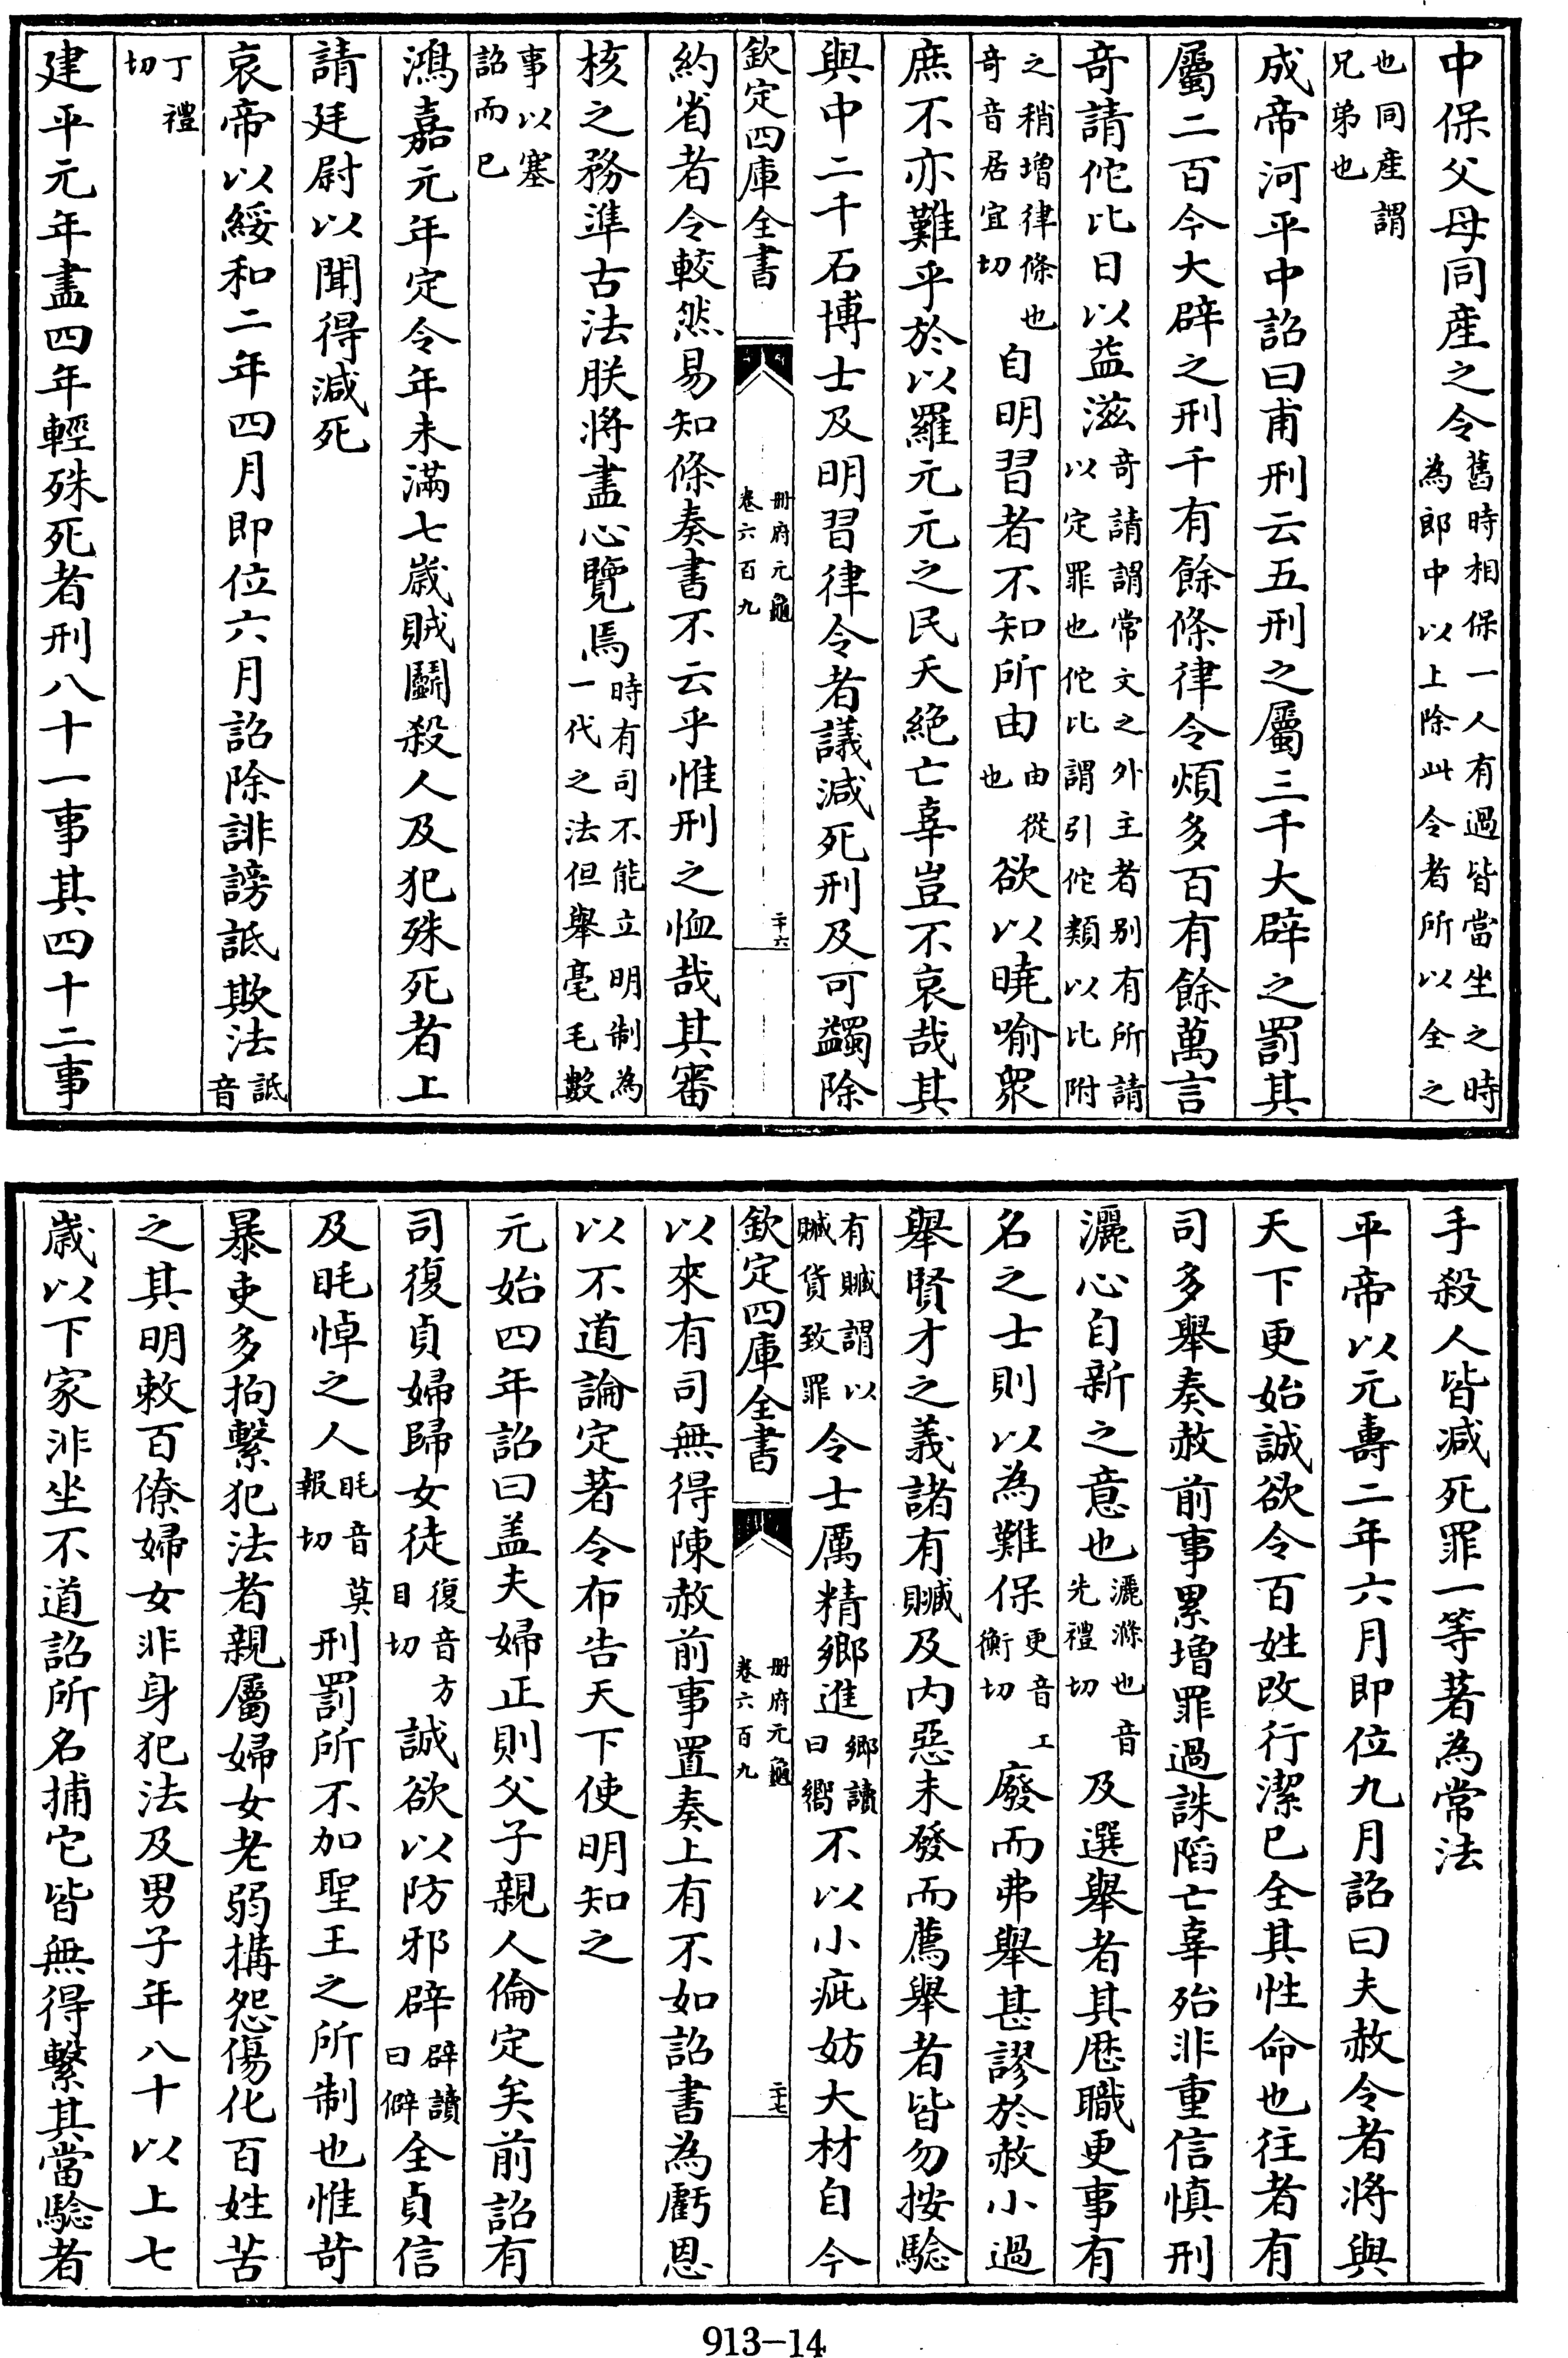 中保父母同産之令舊時相保一人有過皆當坐之時為郎中以上除此令者所以全之
也同産謂兄弟也
成帝河平中詔曰甫刑云五刑之屬三千大辟之罰其
屬二百今大辟之刑千有餘條律令煩多百有餘萬言
竒請佗比日以益滋竒請謂常文之外主者别有所請以定罪也佗比謂引佗類以比附
之稍增律條也竒音居宜切自明習者不知所由由從也欲以曉喻衆
庶不亦難乎於以羅元元之民夭絶亡辜豈不哀哉其
與中二千石博士及明習律令者議減死刑及可蠲除
欽定四庫全書
冊府元龜
卷六百九
二十六
約省者令較然易知條奏書不云乎惟刑之恤哉其審
核之務準古法朕將盡心覽焉時有司不能立明制為一代之法但舉毫毛數
事以塞詔而已
鴻嘉元年定令年未滿七歲賊鬬殺人及犯殊死者上
請廷尉以聞得減死
哀帝以綏和二年四月即位六月詔除誹謗詆欺法詆音
丁禮切
建平元年盡四年輕殊死者刑八十一事其四十二事
手殺人皆減死罪一等著為常法
平帝以元壽二年六月即位九月詔曰夫赦令者將與
天下更始誠欲令百姓改行潔已全其性命也往者有
司多舉奏赦前事累增罪過誅陷亡辜殆非重信慎刑
灑心自新之意也灑滌也音先禮切及選舉者其歷職更事有
名之士則以為難保更音工衡切廢而弗舉甚謬於赦小過
舉賢才之義諸有贓及内惡未發而薦舉者皆勿按驗
有贓謂以贓貨致罪令士厲精鄉進鄉讀曰嚮不以小疵妨大材自今
欽定四庫全書
冊府元龜
卷六百九
二十七
以來有司無得陳赦前事置奏上有不如詔書為虧恩
以不道論定著令布告天下使明知之
元始四年詔曰盖夫婦正則父子親人倫定矣前詔有
司復貞婦歸女徒復音方目切誠欲以防邪辟辟讀曰僻全貞信
及眊悼之人眊音莫報切刑罰所不加聖王之所制也惟苛
暴吏多拘繫犯法者親屬婦女老弱搆怨傷化百姓苦
之其明敕百僚婦女非身犯法及男子年八十以上七
歲以下家非坐不道詔所名捕它皆無得繫其當驗者
913-14